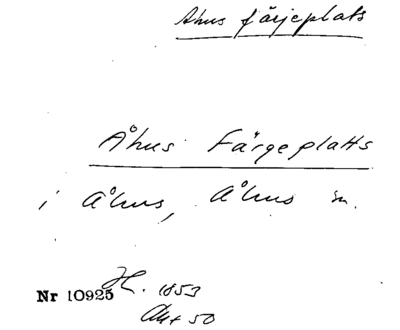 Åhus färjeplats
Åhus Färgeplatts
i Åhus, Åhus sn.
Nr 10925 H. 1853
Akt 50